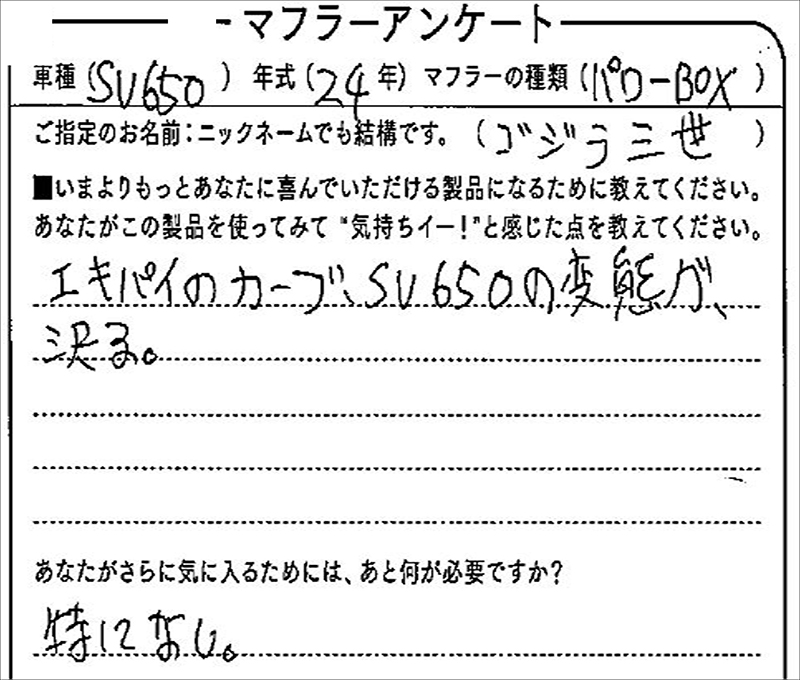 -マフラーアンケート
車種(SV650) 年式(24年) マフラーの種類(パワーBOX)
ご指定のお名前：ニックネームでも結構です。(ゴジラ三世)
■いまよりもっとあなたに喜んでいただける製品になるために教えてください。
あなたがこの製品を使ってみて“気持ちイー！”と感じた点を教えてください。
エキパイのカーブ、SV650の変態が、
沢る。
あなたがさらに気に入るためには、あと何が必要ですか？
特になし。